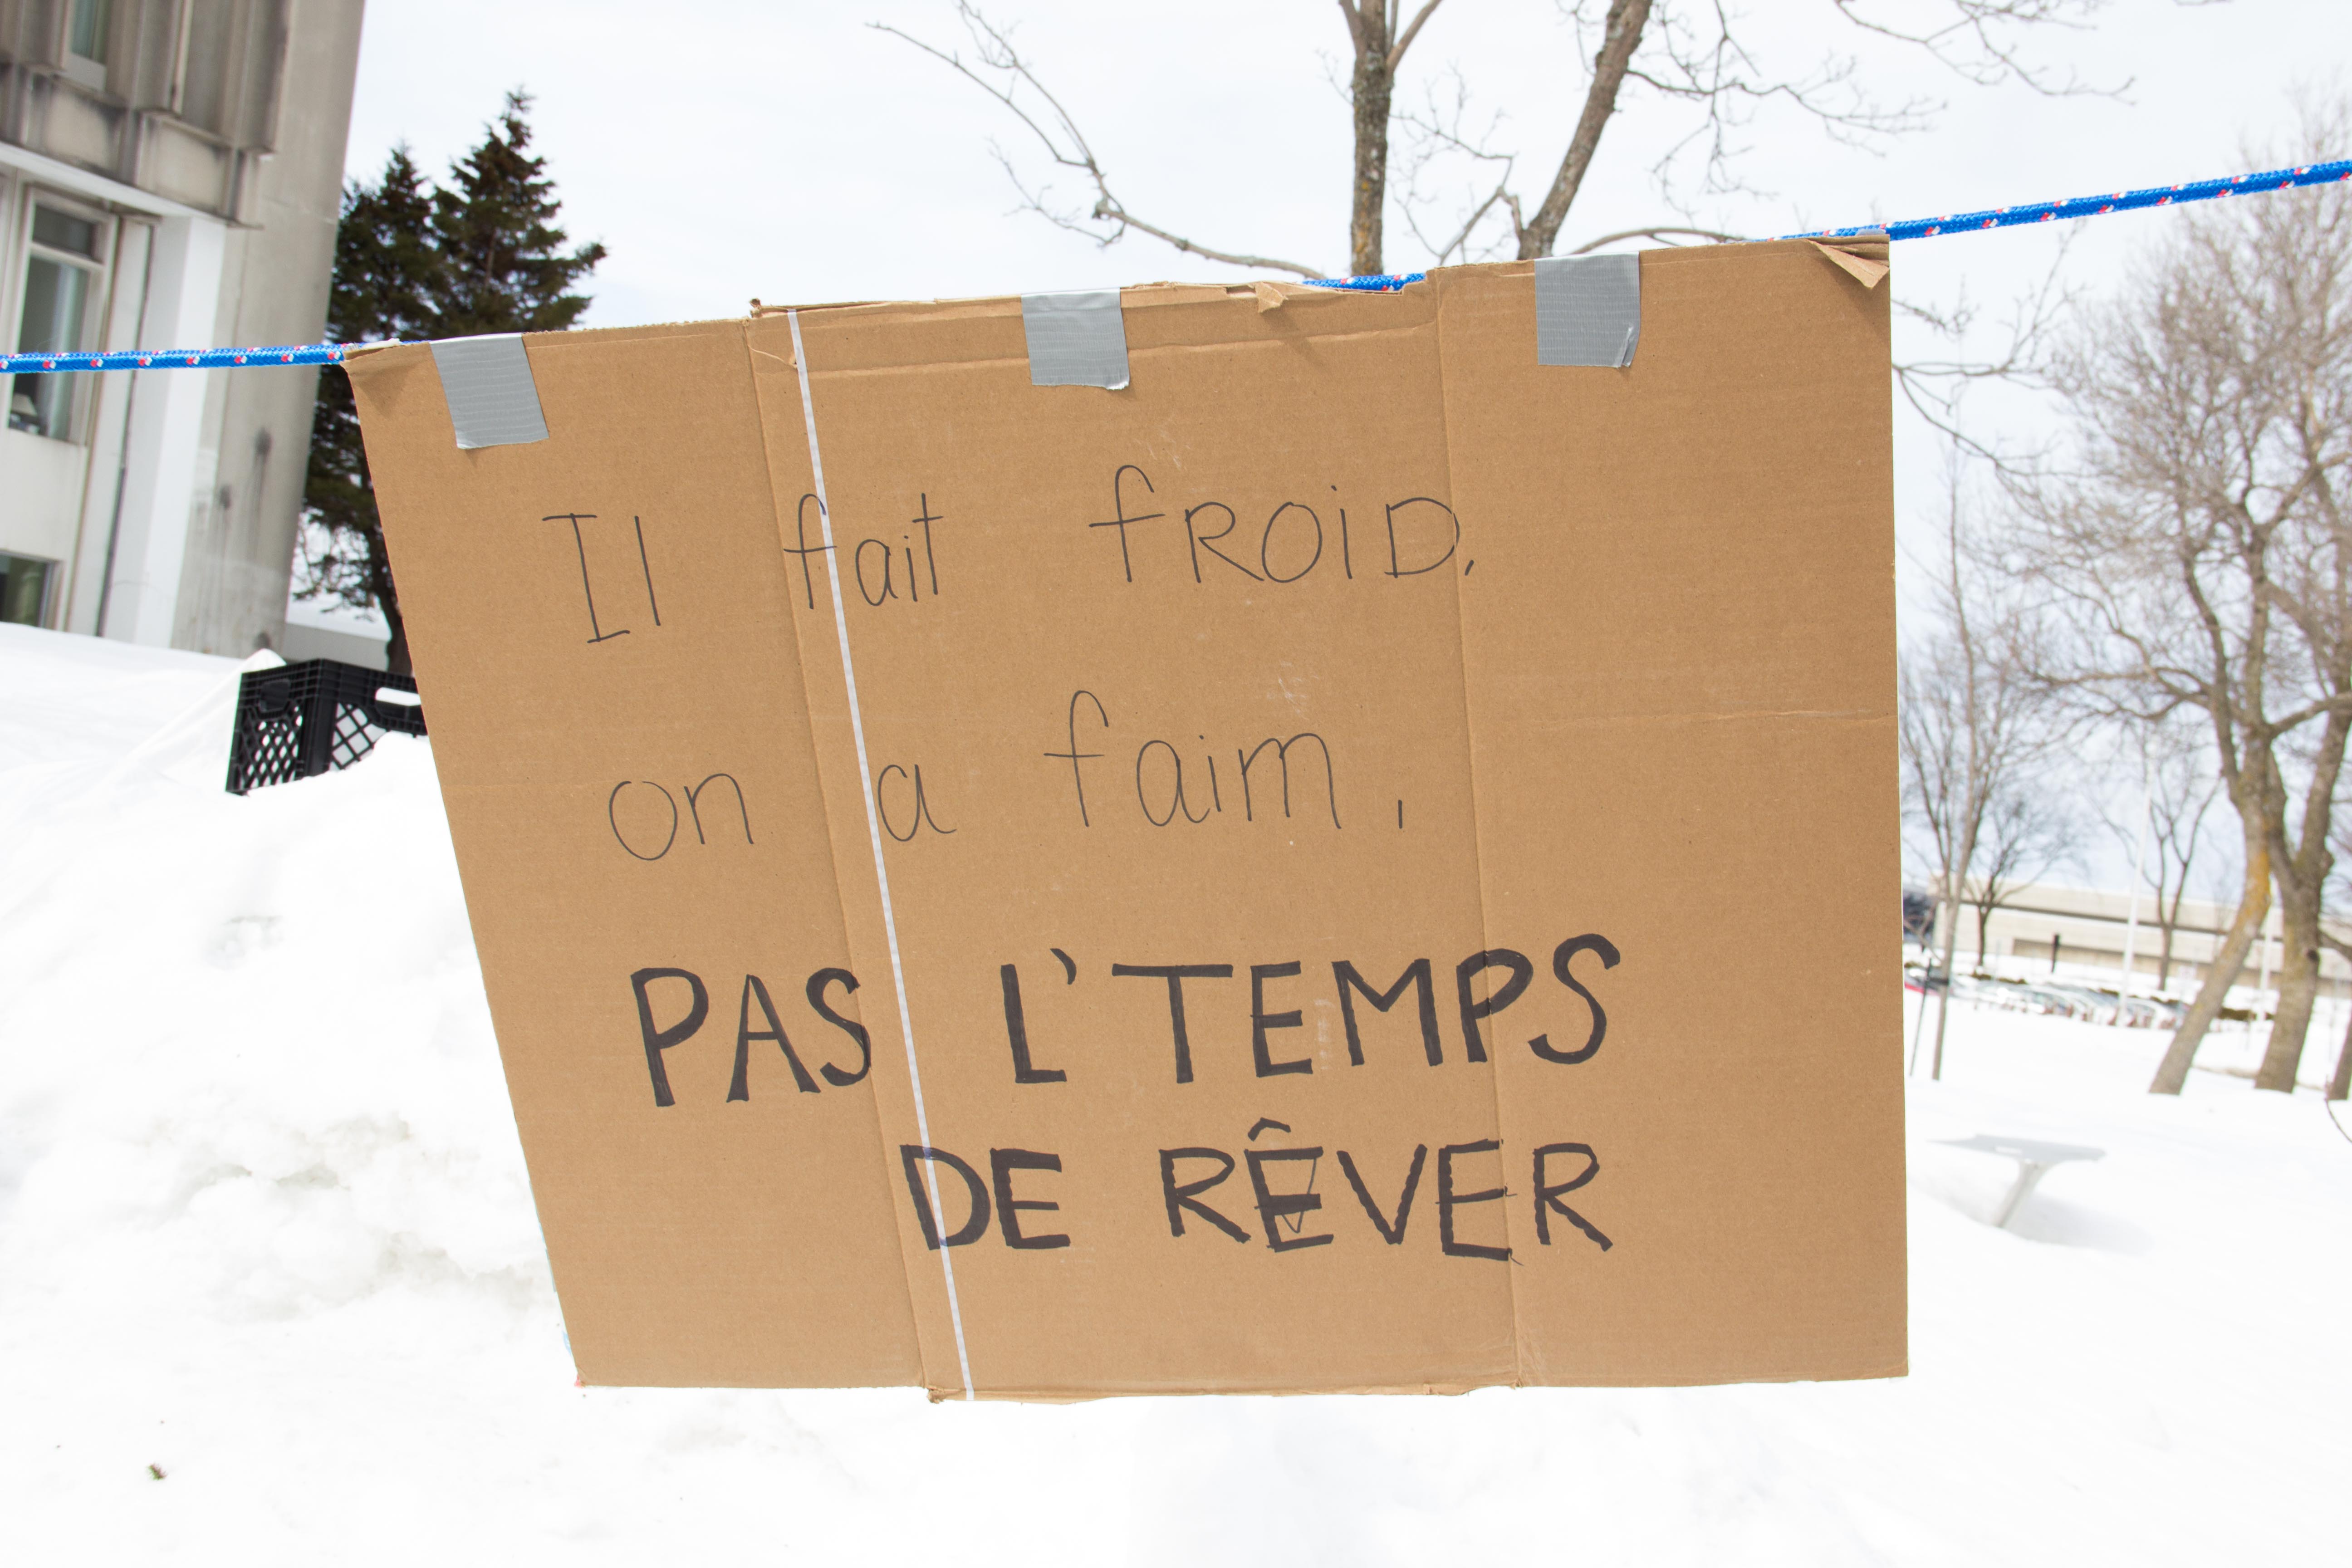 Il fait fROiD,
on a faim,
PAS L'TEMPS
DE RÊVER